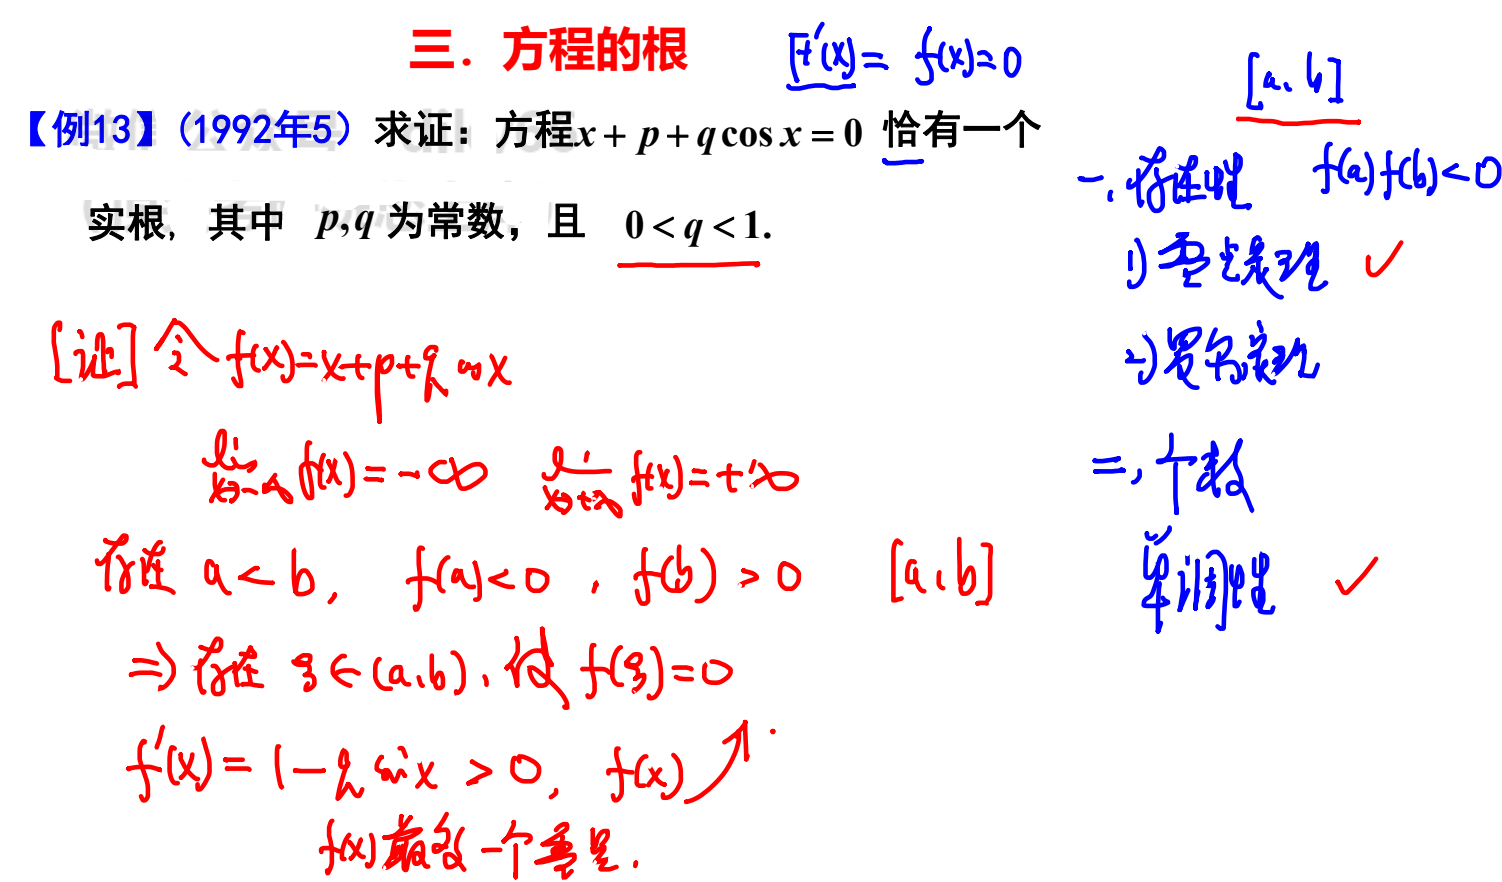 三．方程的根
F'(x)= f(x)=0
【例13】(1992年5) 求证：方程x + p + q cos x = 0 恰有一个
实根, 其中 p,q 为常数，且 0 < q < 1.
[证] 令 f(x)=x+p+q cos x
lim x→-∞ f(x)=-∞ lim x→+∞ f(x)=+∞
存在 a<b, f(a)<0, f(b)>0 [a,b]
⇒ 存在 ξ∈(a,b), 使 f(ξ)=0
f'(x)=1-q sin x >0, f(x)↗.
f(x)最多一个零点.
[a,b]
一, 存在性 f(a)f(b)<0
1) 零点定理 ✓
2) 罗尔定理
二, 个数
单调性 ✓